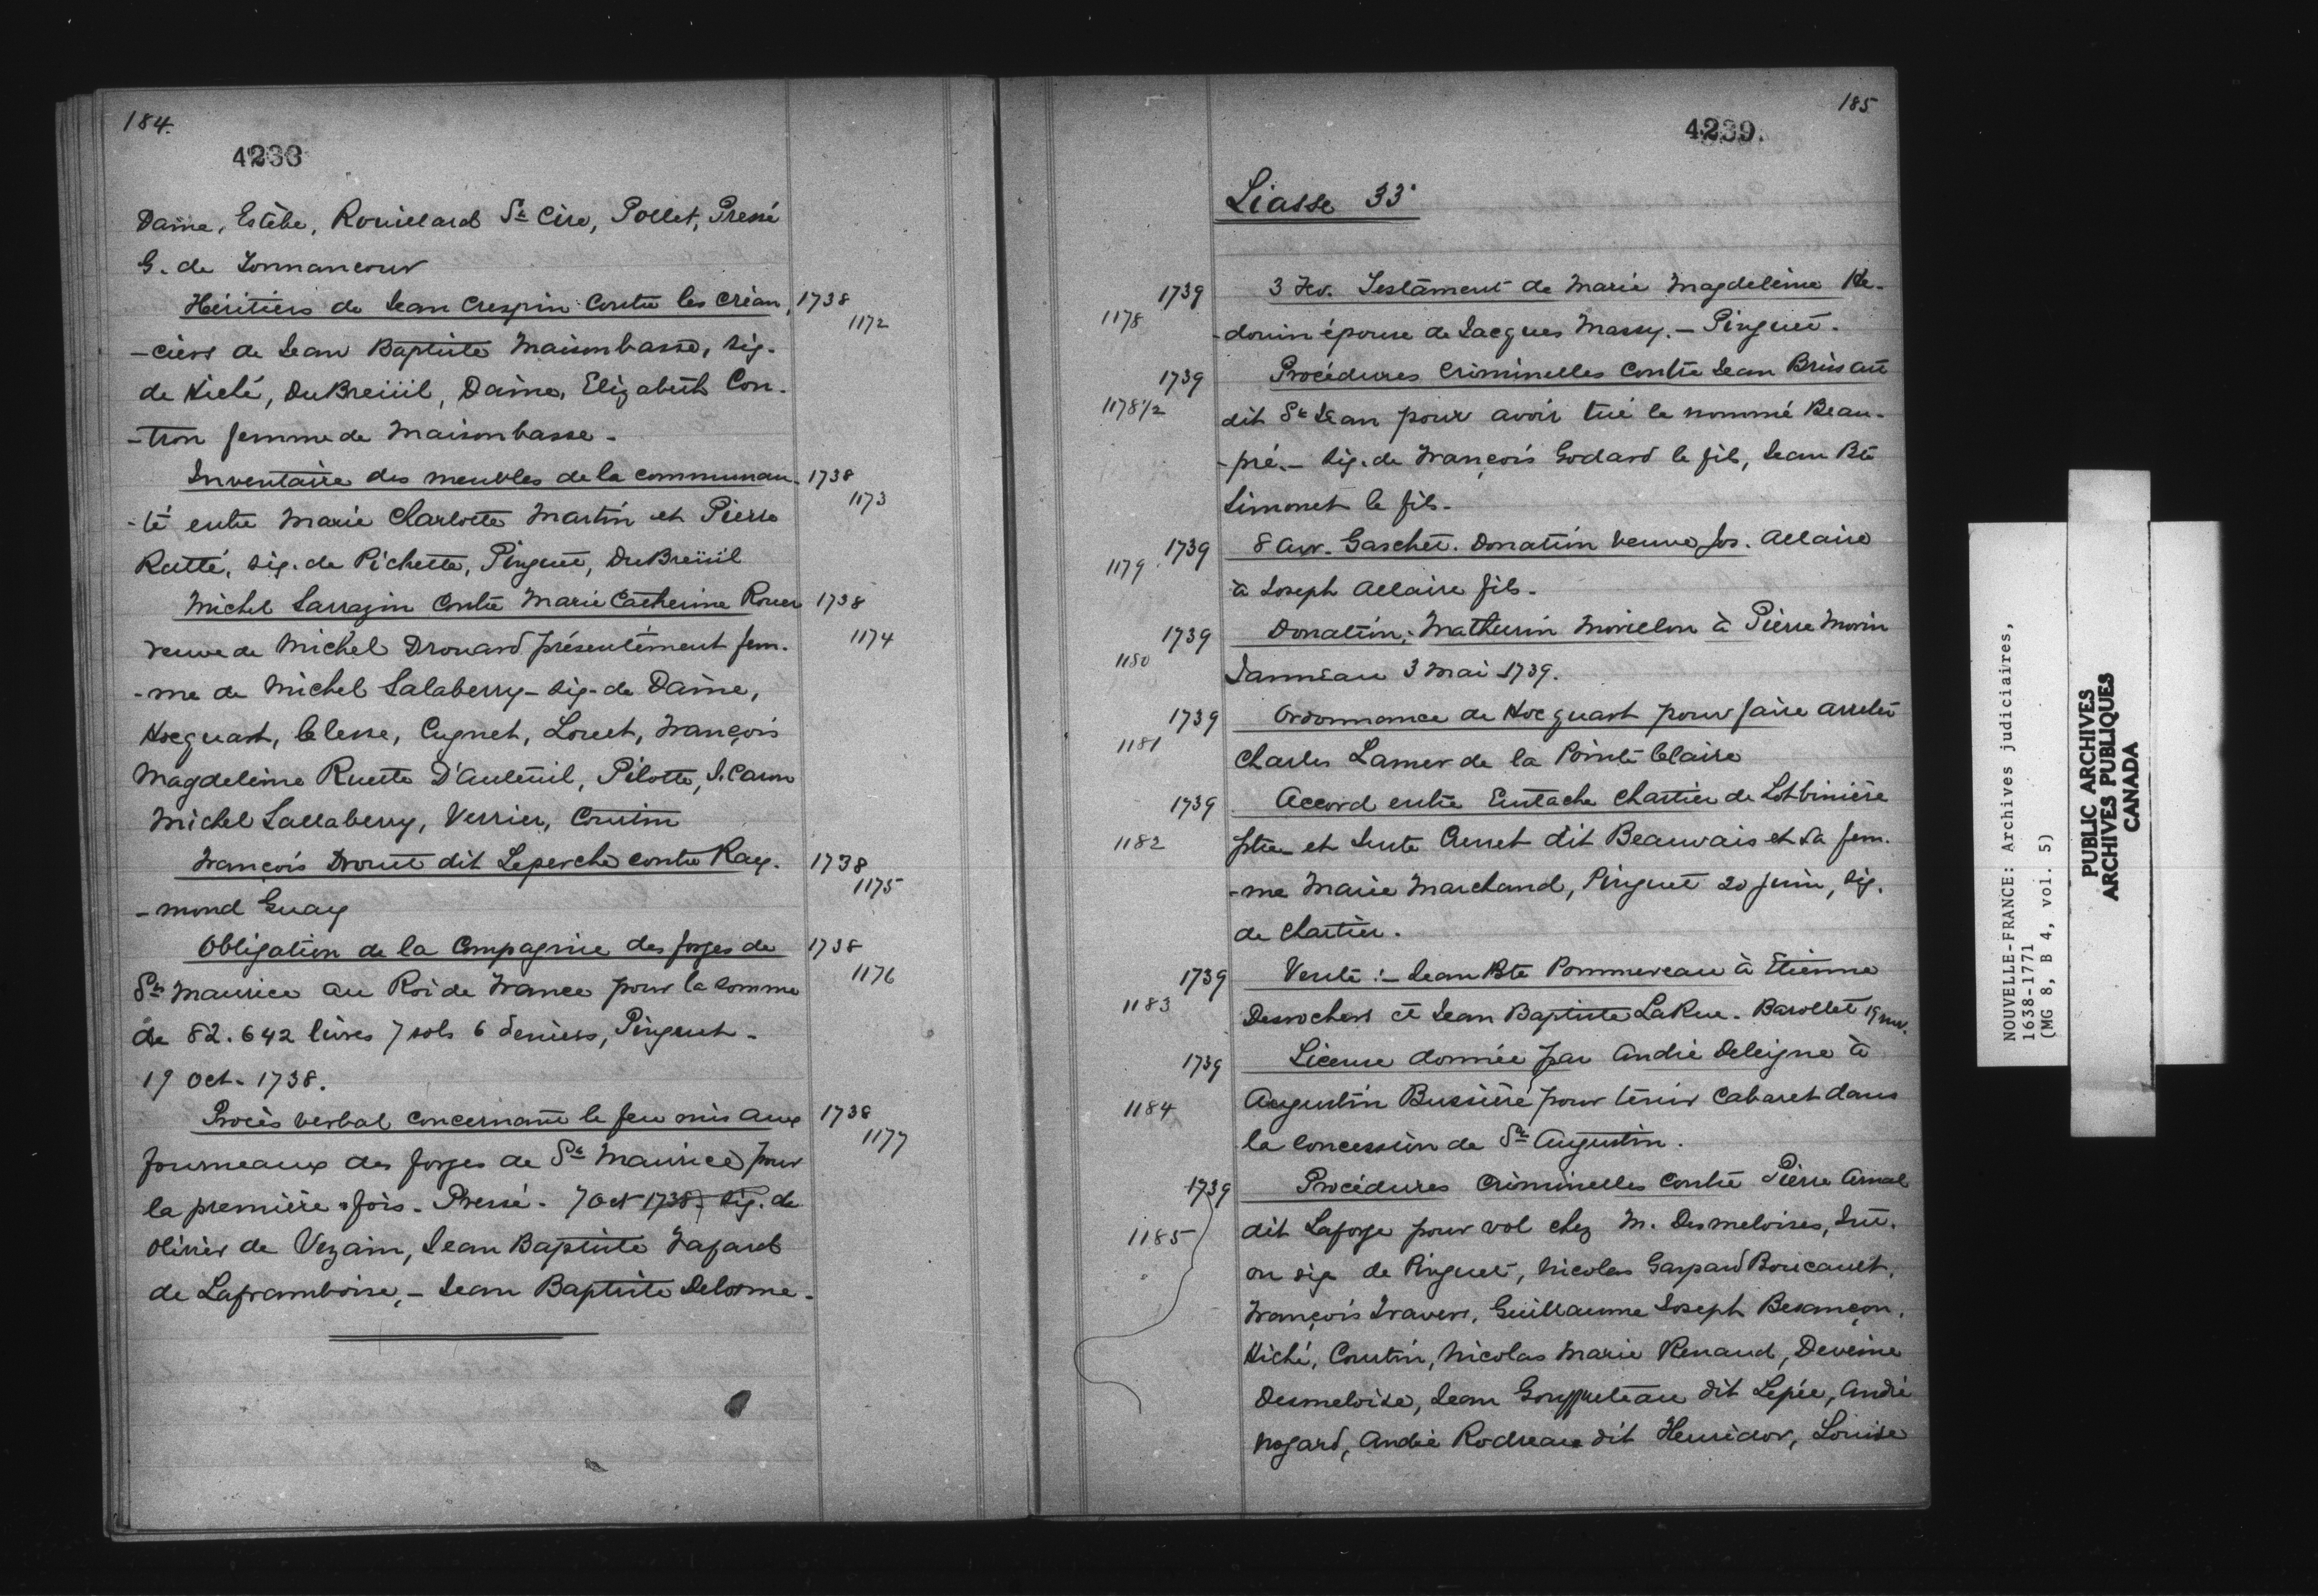 184.
4233
Daine, Estèbe, Rouillard St Cire, Pollet, Pressé
G. de Tonnancour
Héritiers de Jean Crespin Contre les Créan, 1738
1172
-ciers de Jean Baptiste Maisonbasse, Sig.
de Hiché, DuBreüil, Daine, Elizabeth Con-
-tron femme de Maisonbasse -
Inventaire des meubles de la communau- 1738
1173
-té entre Marie Charlotte Martin et Pierre
Ratté, sig. de Pichette, Pinguet, DuBreüil
Michel Sarrazin Contre Marie Catherine Rouer 1738
veuve de Michel Drouard présentement fem- 1174
-me de Michel Salaberry - Sig. de Daine,
Hocquart, Clesse, Cugnet, Louet, François
Magdeleine Ruette D'Auteuil, Pilotte,
Michel Sallaberry, Verrier, Courtin
François Drouet dit Leperche contre Ray- 1738
1175
-mond Guay
Obligation de la Compagnie des forges de 1738
1176
St Maurice au Roi de France pour la somme
de 82.642 livres 7 sols 6 deniers, Pinguet -
19 Oct. 1738.
Procès verbal concernant le feu mis aux 1738
1177
fourneaux des forges de St Maurice pour
la première fois - Pressé - 7 Oct 1738, Sig. de
Olivier de Vezain, Jean Baptiste
de Laframboise, - Jean Baptiste Delorme -
185
4239.
Liasse 33
1739 3 Fev. Testament de Marie Magdeleine He-
1178 -douin épouse de Jacques Massy. - Pinguet.
1739 Procédures Criminelles Contre Jean
1178 1/2 dit St Jean pour avoir tué le nommé Beau-
-pré. - Sig. de François Godard le fils, Jean Bte
Simonet le fils -
1739 8 Avr. Gaschet. Donation veuve Jos. Allaire
1179 à Joseph Allaire fils -
1739 Donation; Mathurin Morillon à Pierre Morin
1180 Janneau 3 Mai 1739.
1739 Ordonnance de Hocquart pour faire arreter
1181 Charles Lamer de la Pointe Claire
1739 Accord entre Eustache Chartier de Lotbinière
1182 ptre et dit Beauvais et sa fem-
-me Marie Marchand, Pinguet 20 Juin, Sig.
de Chartier.
1739 Vente :- Jean Bte Pommereau à Etienne
1183 Desrochers et Jean Baptiste LaRue - Barollet 19
1739 License donnée par André Deleigne à
1184 Augustin Bussière pour tenir Cabaret dans
la concession de St Augustin.
1739 Procédures Criminelles Contre Pierre Arnal
1185 dit Laforge pour vol chez M. Desmeloises,
on sig de Pinguet, Nicolas Gaspard Boucault,
François Travers, Guillaume Joseph Besançon,
Hiché, Courtin, Nicolas Marie Renaud, Deveine
Desmeloise, Jean dit Lepée, André
Nogard, André dit Henridor, Louise
NOUVELLE-FRANCE: Archives judiciaires,
1638-1771
(MG 8, B 4, vol. 5)
PUBLIC ARCHIVES
ARCHIVES PUBLIQUES
CANADA